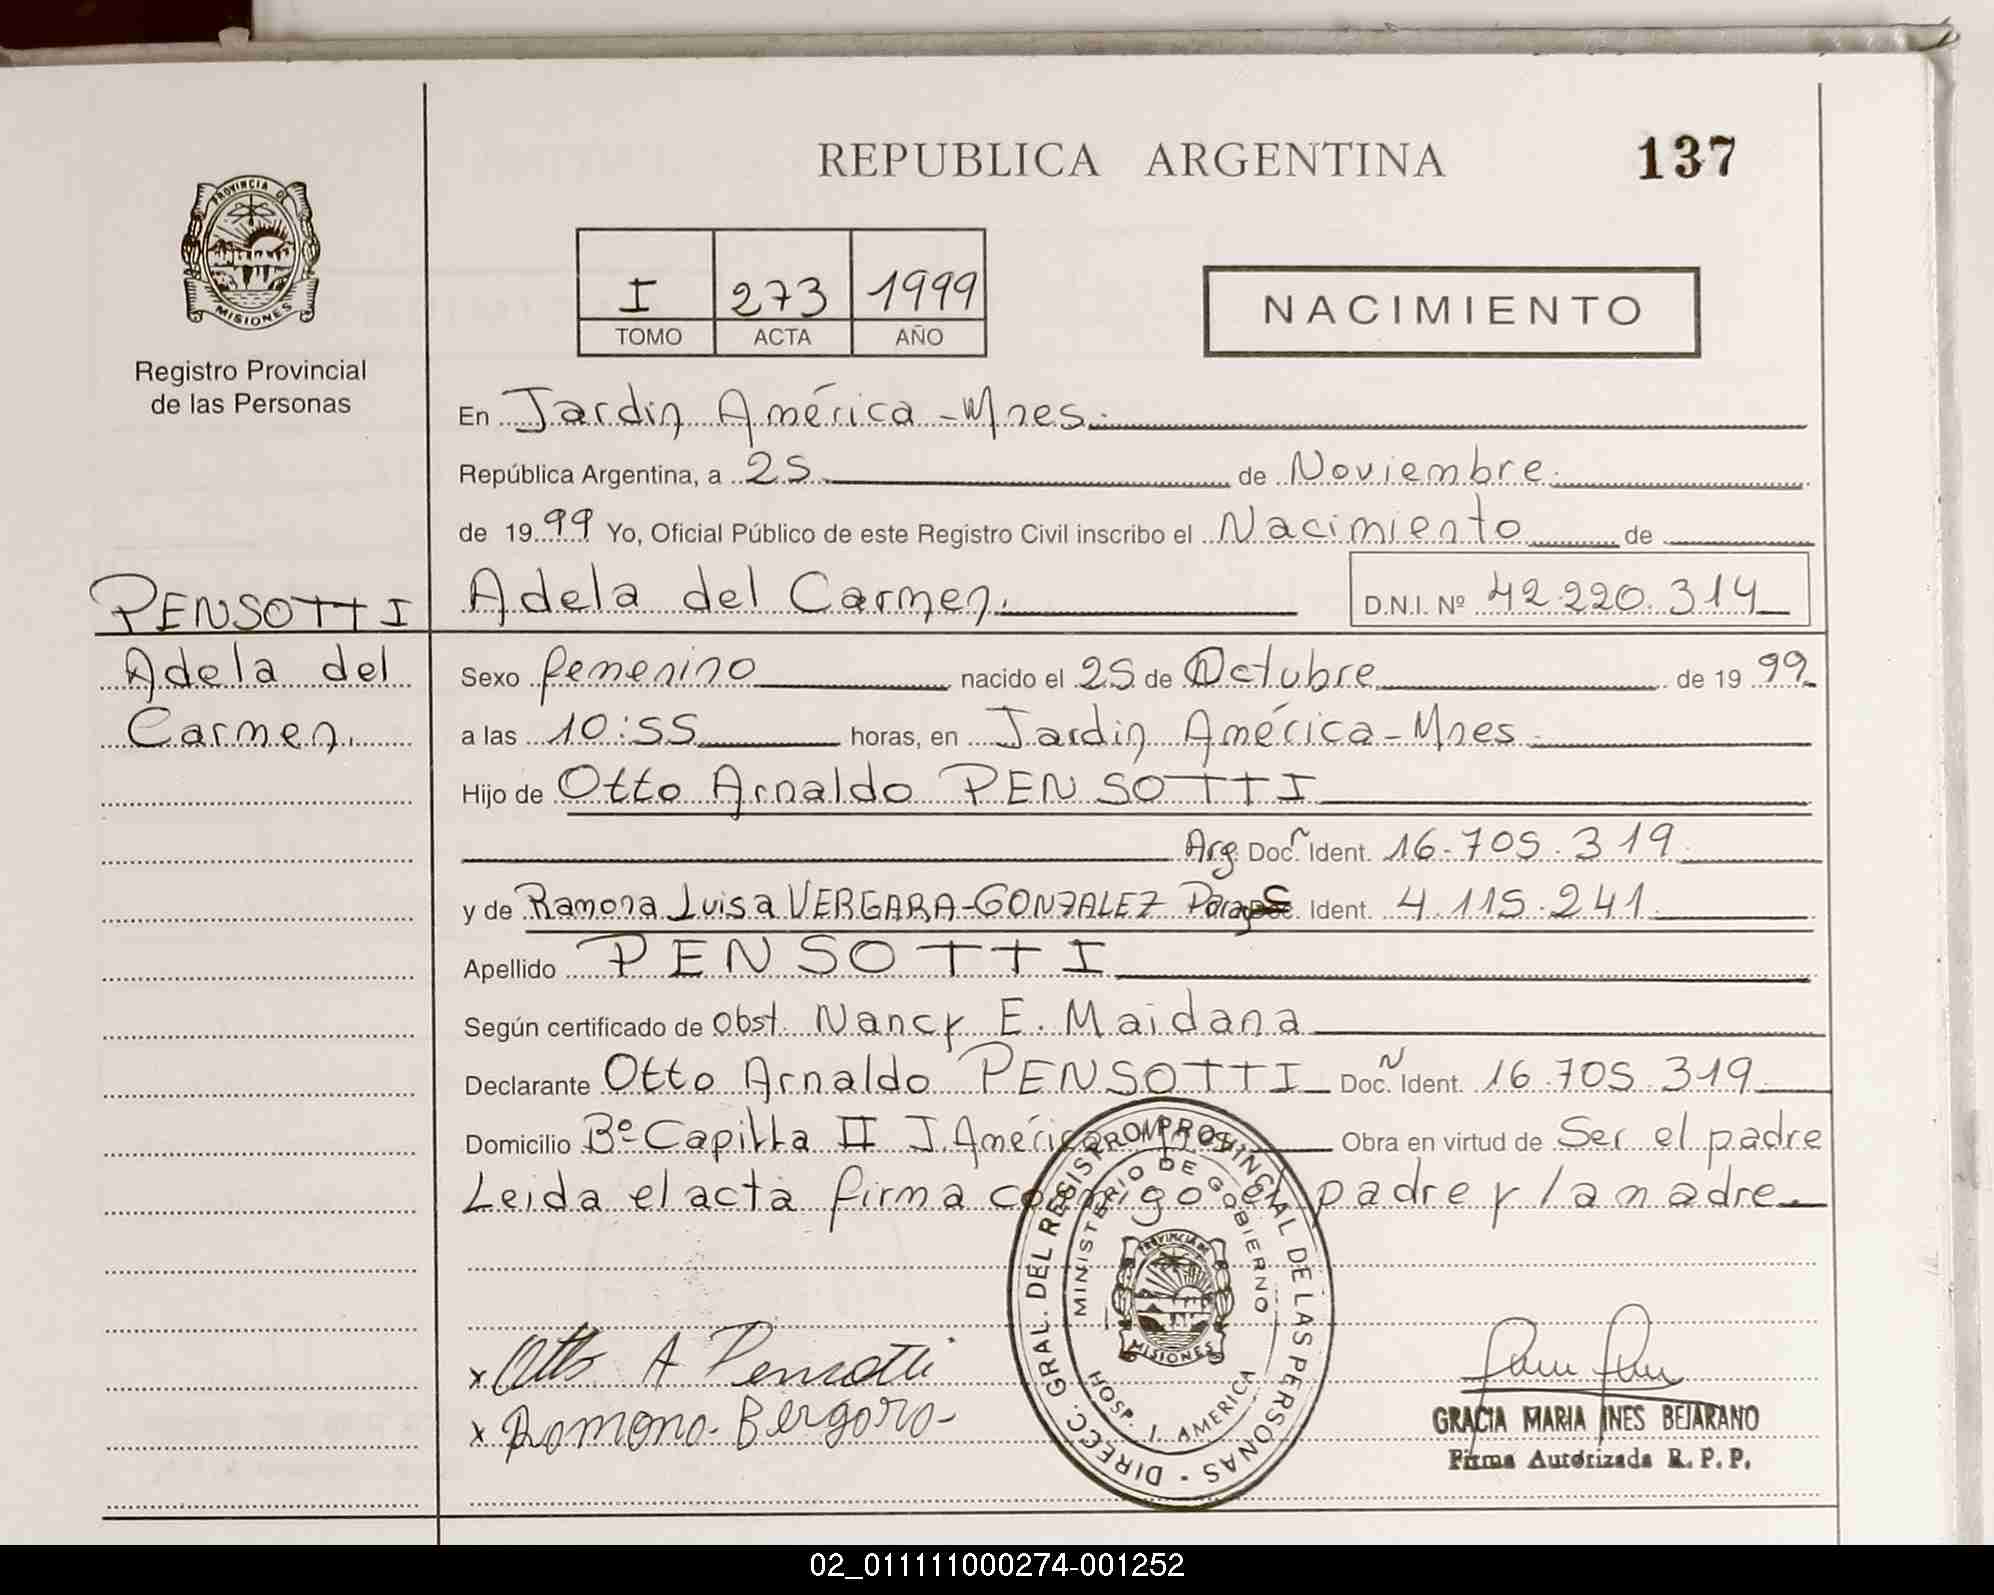 REPUBLICA ARGENTINA
137
PROVINCIA DE
MISIONES
Registro Provincial
de las Personas
I 273 1999
TOMO ACTA AÑO
NACIMIENTO
En Jardin América - Mnes.
República Argentina, a 25 de Noviembre
de 1999 Yo, Oficial Público de este Registro Civil inscribo el Nacimiento de
PENSOTTI
Adela del
Carmen.
Adela del Carmen. D.N.I. Nº 42.220.314
Sexo femenino nacido el 25 de Octubre de 1999
a las 10:55 horas, en Jardin América - Mnes.
Hijo de Otto Arnaldo PENSOTTI
Arg. Doc. Ident. 16.705.319
y de Ramona Luisa VERGARA-GONZALEZ Ident. 4.115.241
Apellido PENSOTTI
Según certificado de Obst. Nancy E. Maidana
Declarante Otto Arnaldo PENSOTTI Doc. Ident. 16.705.319
Domicilio Bº Capilla II J. América Obra en virtud de Ser el padre
Leida el acta firma conmigo el padre y la madre.
DIRECC. GRAL. DEL REGISTRO PROVINCIAL DE LAS PERSONAS
MINISTERIO DE GOBIERNO
PROVINCIA DE
MISIONES
HOSP. J. AMERICA
x Otto A Pensotti
x Romono Bergoro
GRACIA MARIA INES BEJARANO
Firma Autorizada R.P.P.
02_011111000274-001252